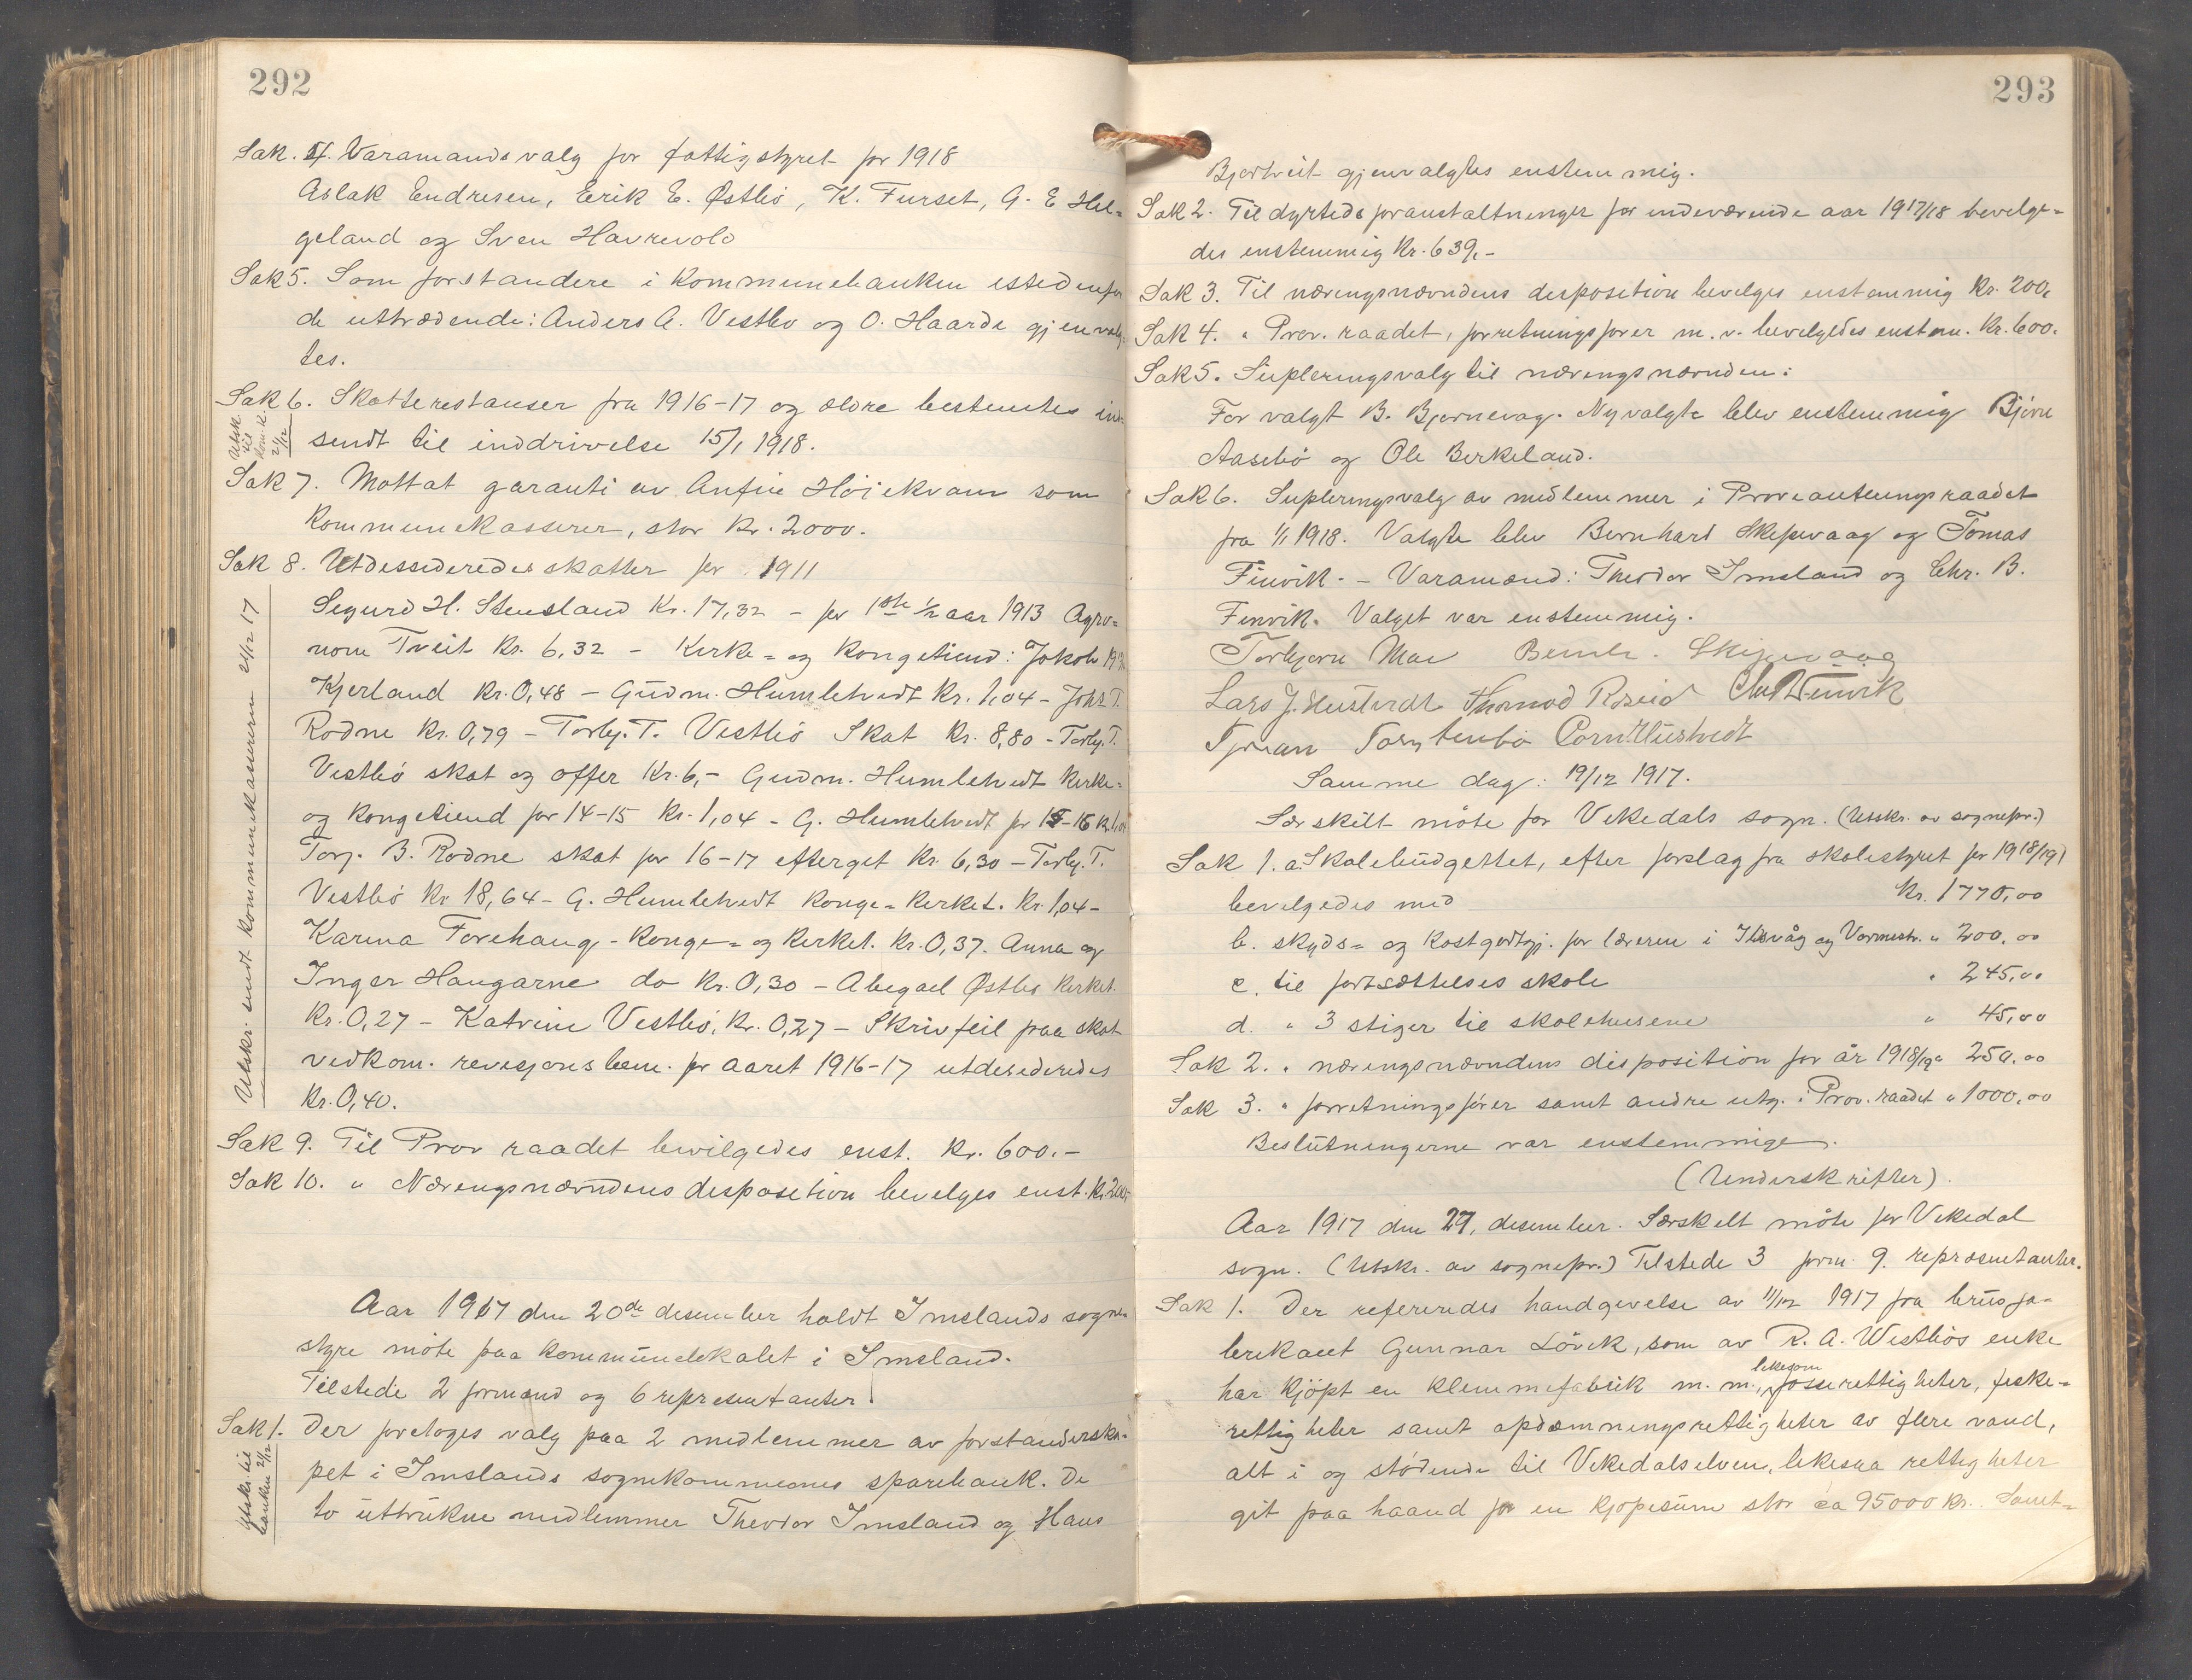 292
Sak. 4. Varamandsvalg for fattigstyret for 1918
Aslak Endresen, Eerik E. Østbö, K. Furset, G. E Hel=
geland og Sven Havrevold
Sak 5. Som forstandere i Kommunebanken istedenfor
de uttrædende: Anders A. Vestbö og O. Haarde gjenvalg-
tes.
Sak 6. Skatterestanser fra 1916-17 og ældre bestemtes ind-
Utsk. til kom.k. 21/12
sendt til inddrivelse 15/1 1918.
Sak 7. Mottat garanti av Anfin Höiekvam som
Kommunekasserer, stor Kr. 2000.
Sak 8. Utdessideredes skatter for 1911
Utskr. sendt kommunekasseren 21/12 17
Segurd H. Stensland Kr. 17,32 - for 1ste 1/2 aar 1913 Agro=
nom Tveit Kr. 6,32 - Kirke= og Kongetiend: Jakob
Kjerland Kr. 0,48 - Gudm. Humlehvedt Kr. 1,04 - Johs T.
Rodne Kr. 0,79 - Torbj. T. Vestbö Skat Kr. 8,80 - Torbj. T.
Vestbö skat og offer Kr. 6,- Gudm. Humlehvedt Kirke=
og Kongetiend for 14-15 Kr. 1,04 - G. Humlehvedt for 15-16 Kr. 1,04
Torj. B. Rodne skat for 16-17 efterget Kr. 6,30 - Torbj. T.
Vestbö Kr 18,64 - G. Humlehvedt Konge= Kirket. Kr. 1,04 -
Karina Forehaug - Konge= og Kirket. Kr. 0,37. Anna og
Inger Haugarne do Kr. 0,30 - Abegael Østbö Kirket.
Kr. 0,27 - Katrine Vestbö, Kr. 0,27 - Skrivfeil paa skat
vedkom. revisjonsbem. for aaret 1916-17 utdesideredes
Kr. 0,40.
Sak 9. Til Prov raadet bevilgedes enst. Kr. 600.-
Sak 10. " Næringsnævndens desposition bevelges enst. Kr. 200,-
Aar 1917 den 20de desember holdt Imslands sogne-
styre möte paa Kommunelokalet i Imsland.
Tilstede 2 formænd og 6 representanter.
Sak 1. Der foretoges valg paa 2 medlemmer av forstanderska-
Utskr. til banken 21/12
pet i Imslands sognekommunes sparebank. De
to uttrukne medlemmer Theodor Imsland og Hans
293
Bjordveit gjenvalgtes enstemmig.
Sak 2. Til dyrtidsforanstaltninger for indeværende aar 1917/18 bevilge=
des enstemmig Kr. 639,-
Sak 3. Til næringsnævndens desposition bevelges enstemmig Kr. 200,
Sak 4. " Prov. raadet, forretningsförer m. v. bevelgedes enstem. Kr. 600.
Sak 5. Supleringsvalg til næringsnævnden:
For valgt B. Bjornevag. Nyvalgte blev enstemmig Björn
Aasebö og Ole Berkeland.
Sak 6. Supleringsvalg av medlemmer i Provianteringsraadet
fra 1/1 1918. Valgte blev Bernhard Skjpevaag og Tomas
Finvik. - Varamænd: Theodor Imsland og Chr. B.
Finvik. Valget var enstemmig.
Torbjorn Mæ Bernh. Skjpevaag
Lars J. Hustvedt Thormod Chr B Finvik
Corn Hustvedt
Samme dag: 19/12 1917.
Særskilt möte for Vekedals sogn. (Utskr. av sognepr.)
Sak 1. a. Skolebudgettet, efter forslag fra skolestyret for 1918/19)
bevelgedes med Kr. 1770,00
b. skyds= og Kostgodtgj. for læreren i Ilsvåg og Vormestr. " 200,00
c. til fortsættelses skole " 245,00
d. " 3 stiger til skolehusene " 45,00
Sak 2. " næringsnævndens disposition for år 1918/19 " 250.00
Sak 3. " forretningsförer samt andre utg. i Prov. raadet " 1000,00
Beslutningerne var enstemmige.
(Underskrifter).
Aar 1917 den 27, desember. Særskelt möte for Vekedal
sogn. (Utskr. av sognepr.) Telstede 3 form. 9. repræsentanter.
Sak 1. Der refereredes handgevelse av 11/12 1917 fra brusfa-
brikant Gunnar Lövik, som av R. A. Westbös enke
har kjöpt en klemmefabrik m. m., likesom fosserettigheter, feske=
rettigheter samt opdæmningsrettigheter av flere vand,
alt i og stödende til Vekedalselven, likesaa rettigheter
git paa haand for en kjöpesum stor ca 95000 kr. Samt=